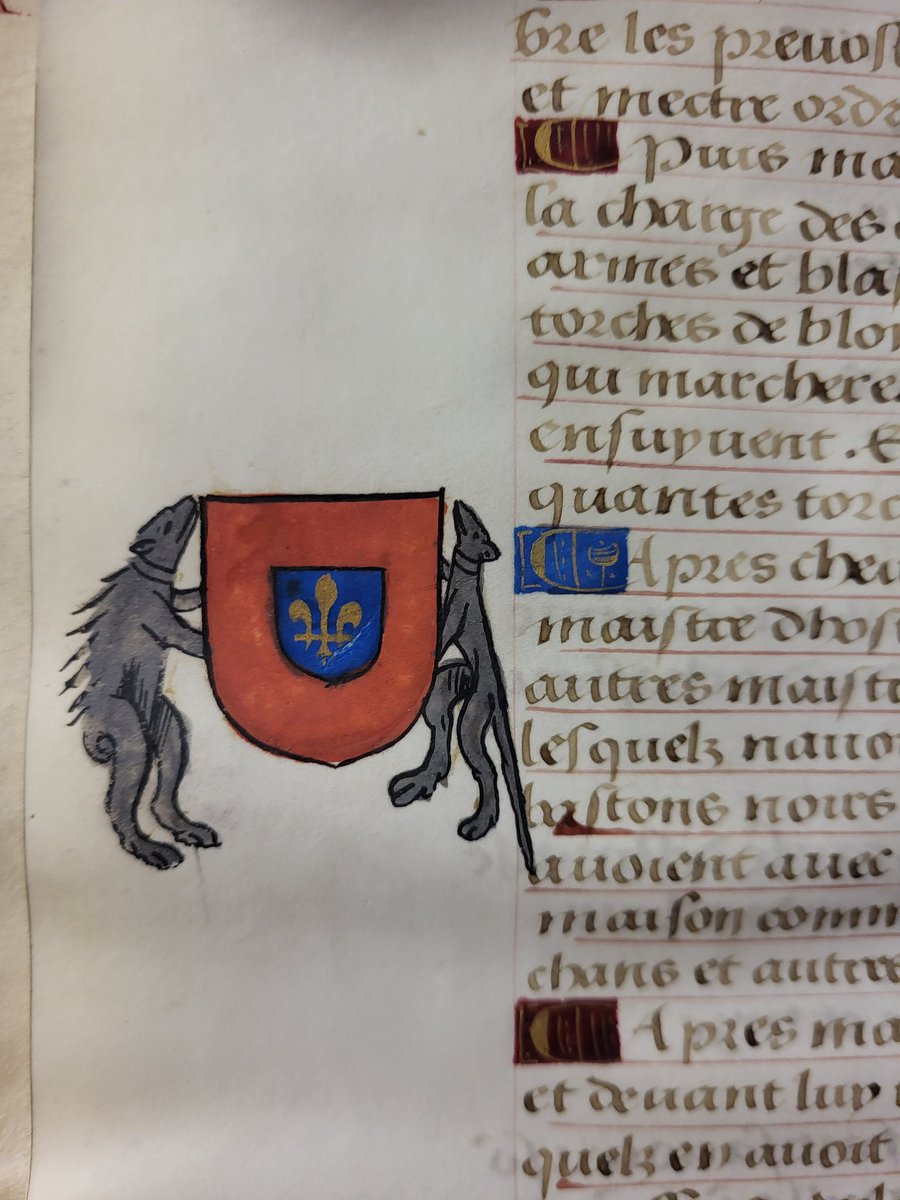 bre les preuost
et mectre ordr
Puis ma
la charge des
armes et blas
torches de blo
qui marchere
ensuyuent . E
quantes torc
Apres cheu
maistre dhos
autres maistr
lesquelz nauo
bastons noirs
auoient auec
maison comm
chans et autres
Apres ma
et deuant luy
quelz en auoit